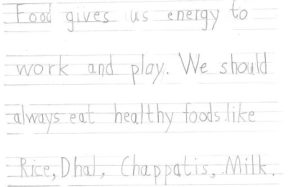 Food gives us energy to
work and play. We should
always eat healthy foods like
Rice, Dhal, Chappatis, Milk.